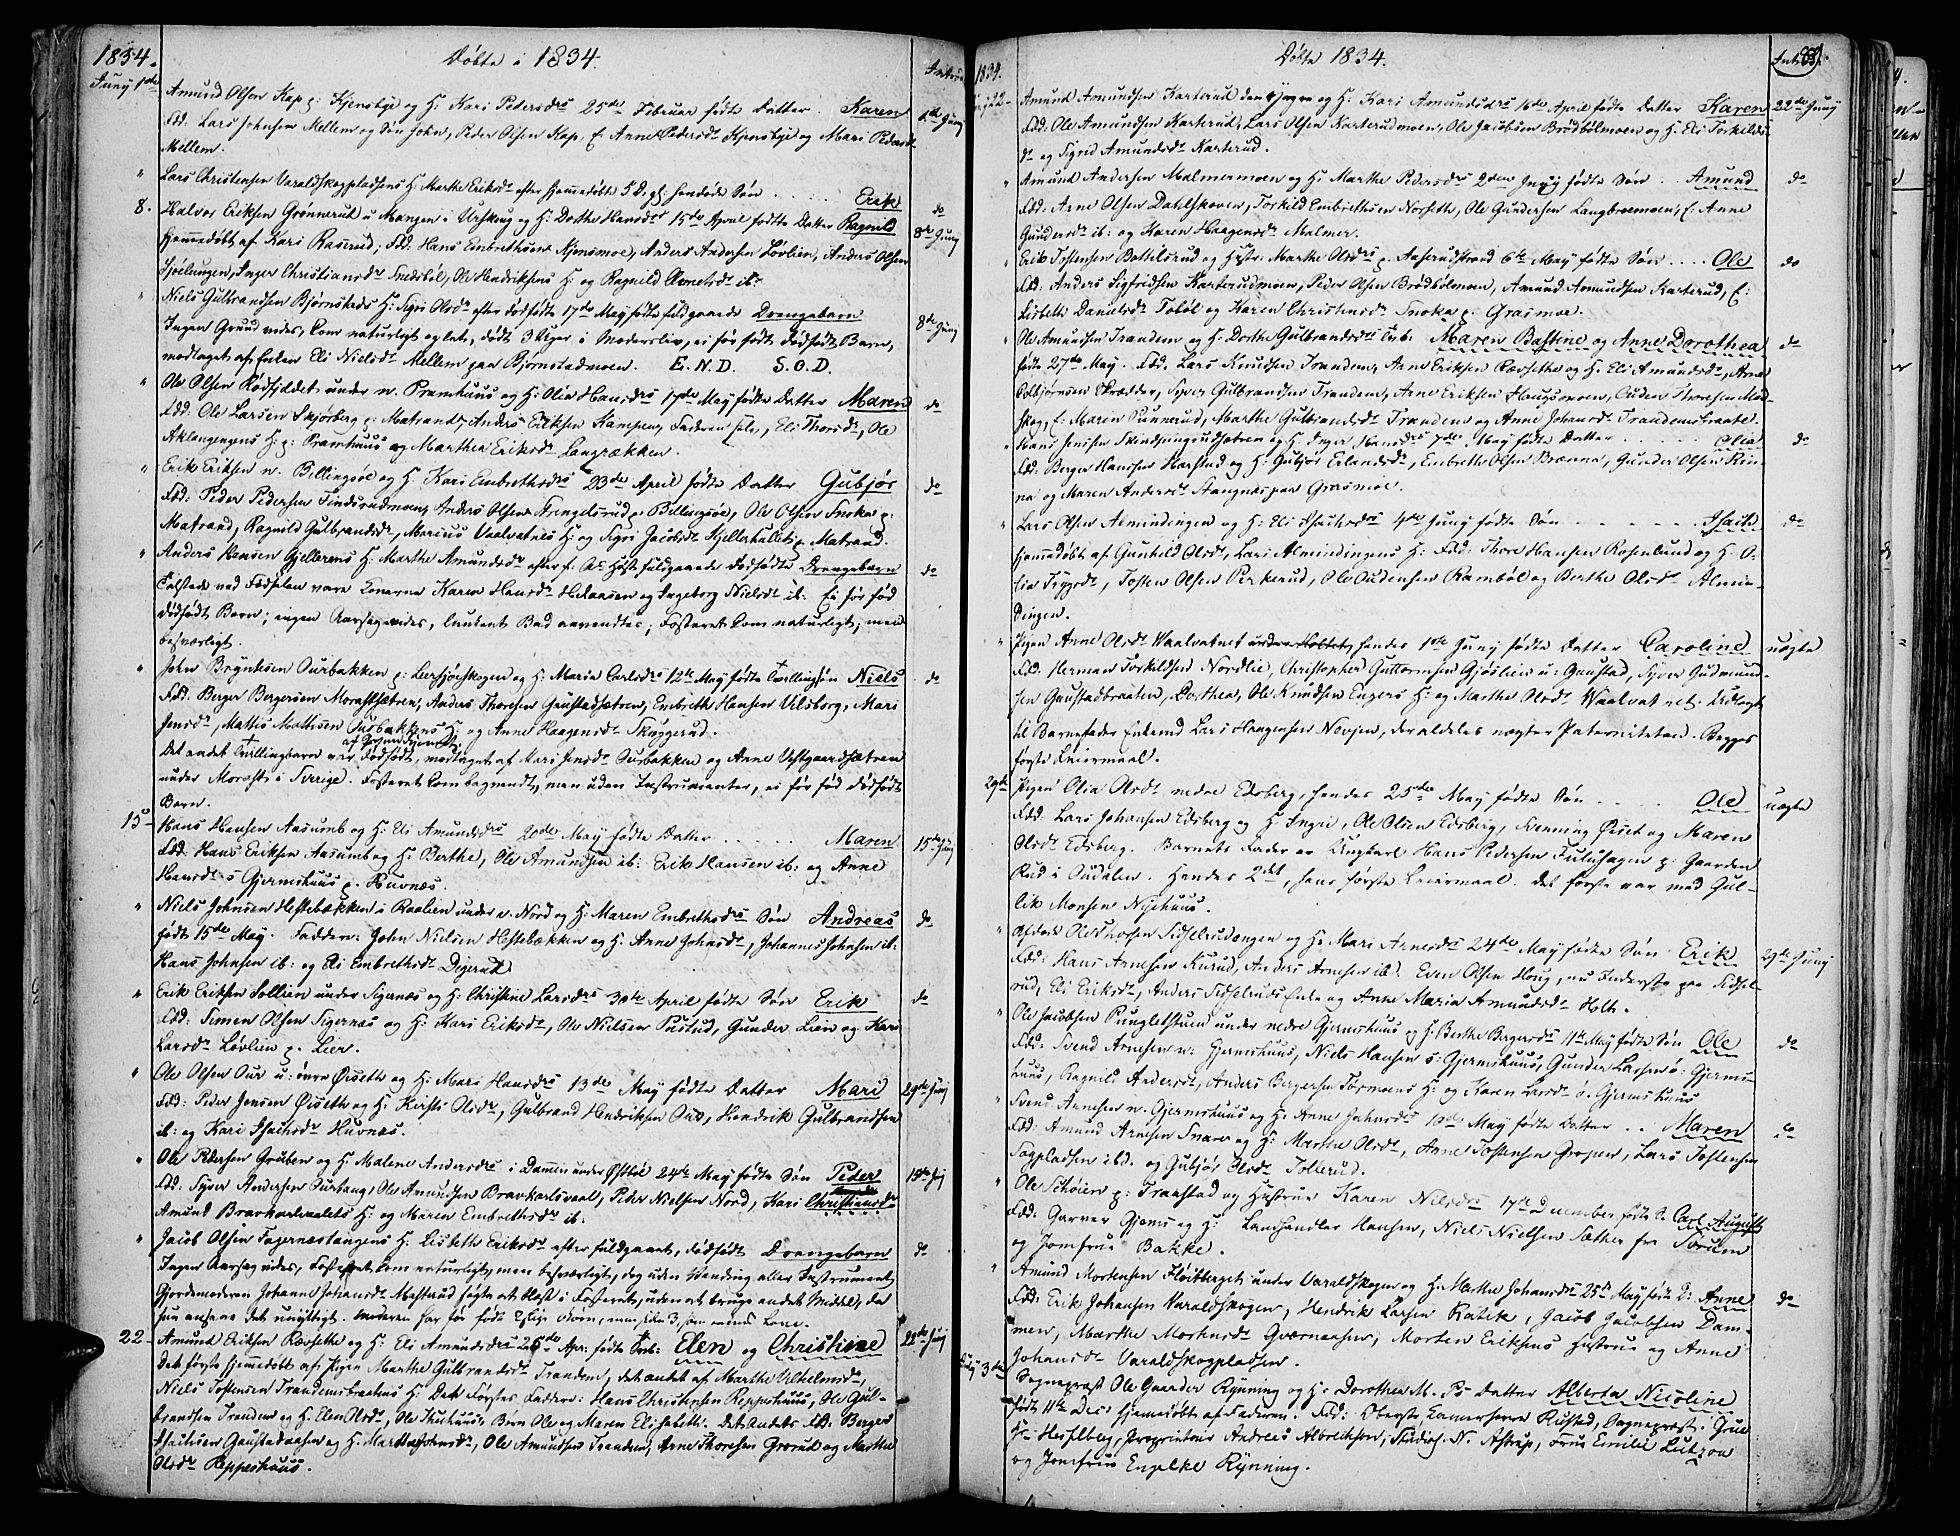 1834.
Døbte i 1834.
Juny 1ste
Amund Olsen Kap p: Kjensbye og H: Kari Pedersdr 25de Februar fødte Datter Karen 1ste Juny
Fad: Lars Johnsen Mellem og Søn John, Peder Olsen Kap, E: Anne Pedersdr Kjensbye og Mari Pedersdr
Mellem.
" Lars Christensen Varaldskogpladsens H: Marthe Eriksdr efter hjemmedøbte 5 D. gl: hendøde Søn Erik do
8. Halvor Eriksen Grønnerud u Mangen i Urskoug og H: Dorthe Hansdr 15de April fødte Datter Ragnild 8de Juny
hjemmedøbt af Kari Raserud, Fad: Hans Embrethsen Kjensmoe, Anders Andersen Løvlien, Anders Olsen
Inger Christiansdr Snedsbøl, Ole Hendriksens H: og Ragnild ib:
" Niels Gulbrandsen Bjørnstads H: Sigri Olsdr efter dødfødte 17de May fødte fuldgaaede Drengebarn 8de Juny
Ingen Grund vides, kom naturligt og let, dødt 3 Uger i Moderliv, ei før født dødfødt Barn,
modtaget af Enken Eli Nielsdr Mellem paa Bjørnstadmoen. E.N.D. S.O.D.
" Ole Olsen Rødfjeldet under n. Pramhuus og H: Olia Hansdr 17de May fødte Datter Maren do
Fad: Ole Larsen Skjørberg p: Matrand, Anders Eriksen Kampen, Faderen selv, Eli Thorsdr, Ole
Aklangengens H: p: Pramhuus og Marthea Eriksdr Langrækken.
" Erik Eriksen n. Billingsøe og H: Kari Embrethsdr 23de April fødte Datter Gubjør do
Fad: Peder Pedersen Tindsrudmoen, Anders Olsen Frengelsrud p. Billingsøe, Ole Olsen Snoka p:
Matrand, Ragnild Gulbrandsdr, Marius Vaalvatnes H: og Sigri Jacobsdr Kjellerhallet p. Matrand.
" Anders Hansen Gjelleråens H: Marthe Amundsdr efter f. fuldgaaede dødfødte Drengebarn do
Tilstede ved Fødselen vare Konerne Karen Hansdr og Ingeborg Nielsdr ib: Ei før fød
dødfødt Barn; ingen Aarsag vides, lunkent Bad anvendtes; Fosteret kom naturligt, men
besværligt.
" John Bryntesen Ourbakken p: Leersjøeskogen og H: Maria Carlsdr 12te May fødte Tvillingsøn Niels do
Fad: Berger Bergersen Morastsætren, Anders Thoresen Gaustadsætren, Embreth Hansen Vilsborg, Mari
Jensdr, Mattis Mathisen Ourbakkens H: og Anne Haagensdr Skyggerud.
Det andet Tvillingbarn var Dødfødt, modtaget af Kari Jensdr Ourbakken og Anne Vestgaardsætren
under Morast i Sverrige. Fosteret kom bagvendt, men uden Instrumenter, ei før fød dødfødt
Barn.
15 Hans Hansen Aasumb og H: Eli Amundsdr 20de May fødte Datter Maren 15de Juny
Fad: Hans Eriksen Aasumb og H: Berthe, Ole Amundsen ib: Erik Hansen ib: og Anne
Hansdr s Gjermshuus p. Huvnæs.
" Niels Johnsen Heftebækken i Raalien under v. Nord og H: Maren Embrethsdr Søn Andreas do
født 15de May. Faddere: John Nielsen Heftebækken og H: Anne Johnsdr, Johannes Johnsen ib:
Hans Johnsen ib: og Eli Embrethsdr Digerud
" Erik Eriksen Sollien under Sigernæs og H: Christine Larsdr 30te April fødte Søn Erik do
Fad: Simen Olsen Sigernæs og H: Kari Eriksdr, Ole Nielsen Tustad, Gunder Lien og Kari
Larsdr Løvlien p. Lier.
" Ole Olsen Our u: øvre Øiseth og H: Mari Hansdr 13de May fødte Datter Mari 29de Juny
Fad: Peder Jensen Øiseth og H: Kirsti Olsdr, Gulbrand Hendriksen Our, Hendrik Gulbrandsen
ib: og Kari Isachsdr Huvnæs.
" Ole Pedersen Gruben og H: Malene Andersdr i Dammen under Øster 24de May fødte Søn Peder 15de Juny
Fad: Syver Andersen Ourbang, Ole Amundsen Bravkarlsvaal, Peder Nielsen Nord, Kari Christiansdr
Amund Bravkarlvaalets H: og Maren Embrethsdr ib.
" Jacob Olsen Sagernæstangens H: Lisbeth Eriksdr efter fuldgaaet, dødfødt Drengebarn do
Ingen Aarsag vides, Fosteret kom naturligt, men besværligt, dog uden Vending eller Instrument,
Jordemoderen Johanne Johansdr Mastrud søgte at blæst i Fosteret, uden at bruge andet Middel, da
hun ansaae det unyttigt. Moderen har før født 2 slige Børn, men siden 3, som endnu leve.
22 Amund Eriksen Rævsethe og H: Eli Amundsdr 26de Apr: fødte Tveb: Elen og Christine 22de Juny
Det første hjemedøbt af Pigen Marthe Gulbrandsdr Tranden, det andet af Marthe Vilhelmsdr,
Niels Tostensen Trandemsbratens H: Det Førstes Faddere: Hans Christensen Reppeshuus, Ole Gul-
brandsen Tranden og H: Elen Olsdr, Ole Børn Ole og Maren Elisabeth. Det Andets Fad: Berger
Isachsen Gaustadaasen og H: Marthe Johnsdr, Ole Amundsen Tranden, Arne Thoresen Grorud og Marthe
Olsdr Reppeshuus.
1834.
Døbte 1834.
Amund Amundsen Karterud den Yngre og H: Kari Amundsdr 16de April fødte Datter Karen 22de Juny
Fad: Ole Amundsen Karterud, Lars Olsen Karterudmoen, Ole Jacobsen Brødbølmoen og H: Eli Torkilds-
dr og Sigrid Amundsdr Karterud.
" Amund Andersen Malmermoen og H: Marthe Pedersdr 2den Juny fødte Søn Amund do
Fad: Arne Olsen Dahlskoven, Torkild Embrethsen Norseth, Ole Gundersen Langbroemoen, E: Anne
Gundersdr ib: og Karen Haagensdr Malmer.
" Erik Tostensen Bottilsrud og Hstr: Marthe Olsdr p. Aaserudstrand 6te May fødte Søn Ole do
Fad: Anders Sigfridsen Karterudmoen, Peder Olsen Brødbølmoen, Amund Amundsen Karterud, E:
Lisbeth Danielsdr Tobøl og Karen Christensdr Snoka p. Grasmoe.
" Ole Amundsen Tranden og H: Dorthe Gulbrandsdr Tveb. Maren Bastine og Anne Dorothea do
fødte 27de May. Fad: Lars Knudsen Tranden, Arne Eriksen Rævsethe og H: Eli Amundsdr, Arne
Asbjørnsen Skrædder, Syver Gulbrandsen Tranden, Arne Eriksen Haugsmoen, Ouden Thoresen Mad-
skog, E. Maren Tunnerud, Marthe Gulbrandsdr Tranden og Anne Johansdr Trandemsbraate.
" Hans Jensen Skindpungrudsætren og H: Inger Hansdr 7de May fødte Datter Olia do
Fad: Berger Hansen Harstad og H: Gubjør Erlandsdr, Embreth Olsen Brænna, Gunder Olsen Rin-
na og Maren Andersdr Stangnæs paa Grasmoe.
" Lars Olsen Almindingen og H: Eli Isachsdr 4de Juny fødte Søn Isach do
hjemedøbt af Gunhild Olsdr, Lars Almindingens H: Fad: Thore Hansen Rosenlund og H: O-
lia Trygsdr, Tosten Olsen Pirkerud, Ole Oudensen Rambøl og Berthe Olsdr Almin-
dingen.
" Pigen Anne Olsdr Vaalvatnet, hendes 1ste Juny fødte Datter Caroline uægte
Fad: Herman Torkildsen Nordlie, Christopher Guttormsen Gjøslien u: Gaustad, Syver Gudmund-
sen Gaustadbraaten, Dorthea, Ole Knudsen Engers H: og Marthe Olsdr Vaalvatnet. Udlagt
til Barnefader Enkemd Lars Haagensen Novjen, der aldeles negter Paterniteten. Begges
første Leiermaal.
29de Pigen Olia Olsdr nedre Edsberg, hendes 25de May fødte Søn Ole uægte
Fad: Lars Johansen Edsberg og H: Ingri, Ole Olsen Edsberg, Svenning Øiset og Maren
Olsdr Edsberg. Barnets Fader er Ungkarl Hans Pedersen Fuluhagen p: Gaarden
Rud i Oudalen. Hendes 2det, hans første Leiermaal. Det første var med Gul-
lik Monsen Nyehuus.
" Olsen Sidselrudengen og H: Mari Arnesdr 24de May fødte Søn Erik 29de Juny
Fad: Hans Arnesen Kurud, Anders Arnesen ibd. Even Olsen Houg, nu Inderste paa Sidsel-
rud, Eli Eriksdr, Anders Sidselruds Enke og Anne Maria Amundsdr Holth.
" Ole Jacobsen Pungletstuen under nedre Gjermshuus og H: Berthe Bergersdr 11te May fødte Søn Ole do
Fad: Svend Arnesen n: Gjermshuus, Niels Hansen s: Gjermshuus, Gunder Larsen ø: Gjerms-
huus, Ragnild Andersdr, Anders Bergersen Tormoens H: og Karen Larsdr ø. Gjermshuus
" Svend Arnesen n. Gjermshuus og H: Anne Johnsdr 19de May fødte Datter Maren do
Fad: Amund Arnesen Snare og H: Marthe Olsdr, Arne Tostensen Gropen, Lars Tostensen
Sagpladsen ibd. og Gubjør Olsdr Tolkerud.
" Ole Schøien p: Traastad og Hustrue Karen Nilsdr 17de December fødte S. Carl August
Fad: Garver Gjems og H: Landhandler Hansen, Niels Nielsen Sæther fra Sørum
og Jomfrue Bakke.
" Amund Mortensen Fløitberget under Varaldskogen og H: Marthe Johansdr 25de May født D: Anne do
Fad: Erik Johansen Varaldskogen, Hendrik Larsen Ratik, Jacob Jacobsen Dam-
men, Marthe Mortensdr Qværnaasen, Morten Eriksens Hustrue og Anne
Johansdr Varaldskogpladsen.
July 3de Sognepræst Ole Gaarder Rynning og H: Dorothea M. Ps Datter Alberta Nicoline
født 11te Dec: hjemedøbt af Faderen. Fad: Oberst, Kamerherre Rustad, Sognepræst i Grue
Hr Heselberg, Proprietair Andreas Albrechtsen, Studios. N. Astrup, Frue Emilie Lutzow
og Jomfrue Engelke Rynning.